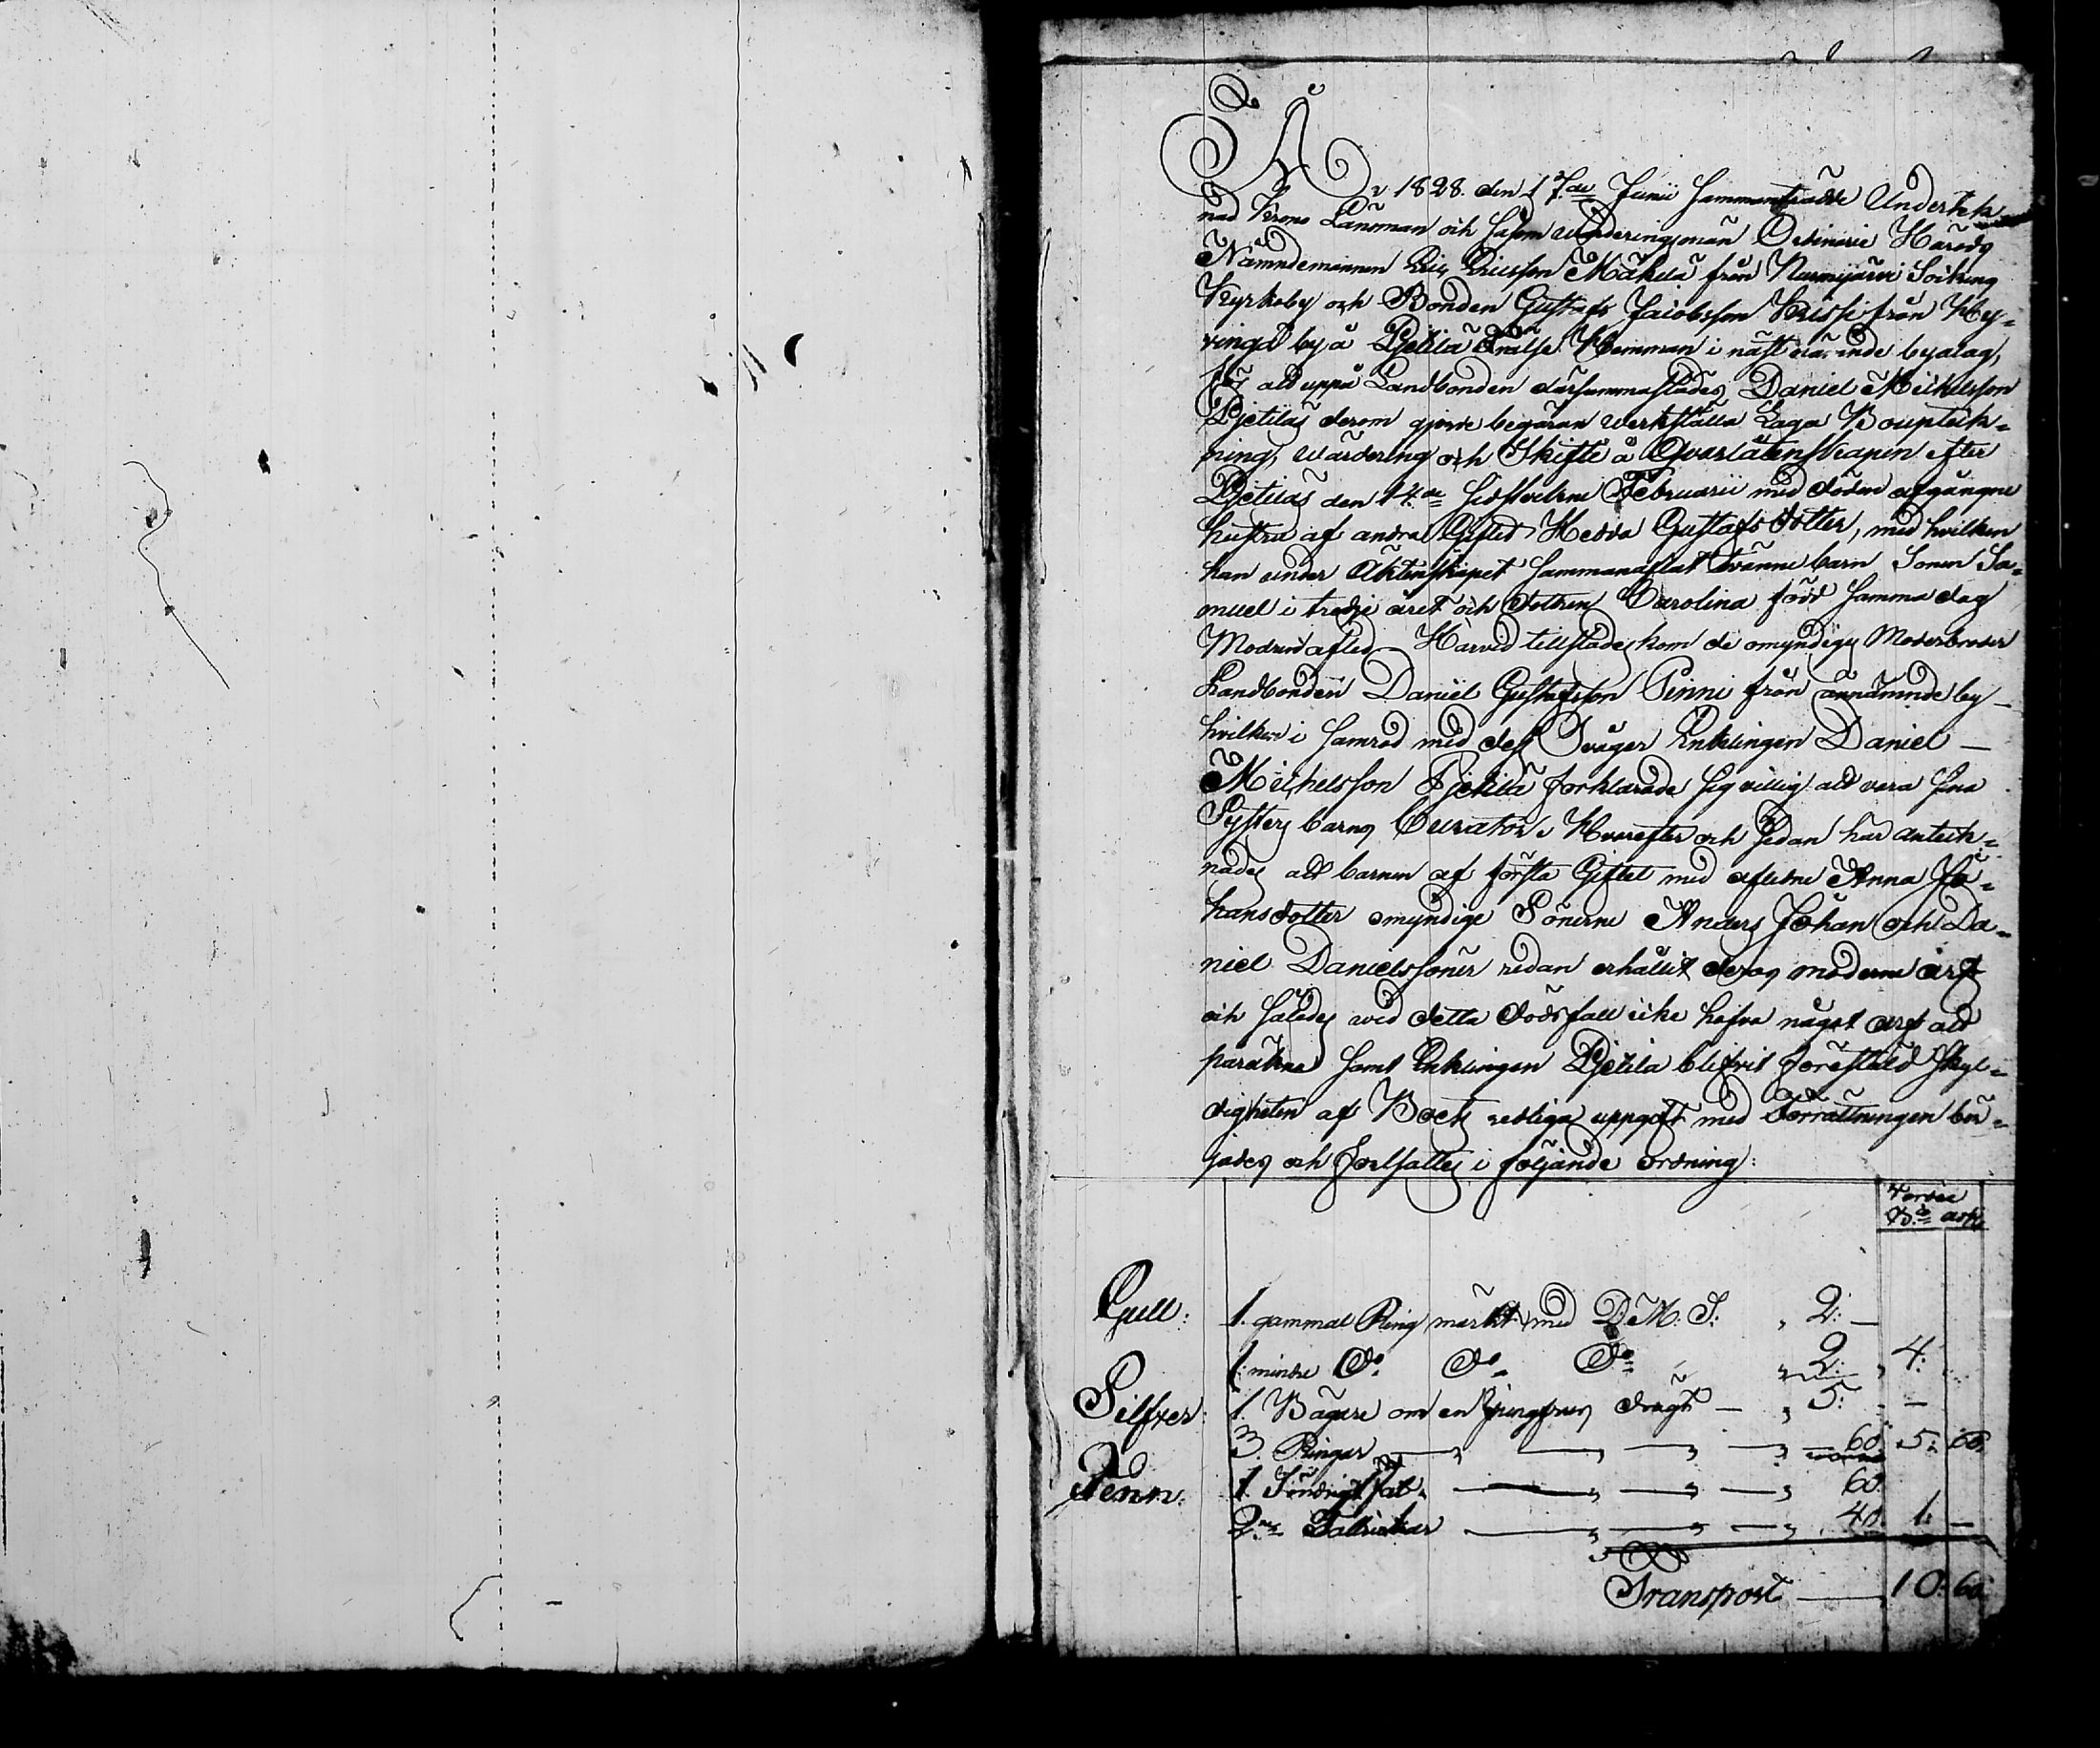 År 1828. den 17de Junii Sammanträdde Undertek-
nad Krono Länsman och Såsom värderingsmän Ordinarie Härads
Nämndemannen Eric Ericsson Mäkilä från Nurmijärvi Sockens
Kyrkoby och Bonden Gustafs Jacobsson Krissi från Hy-
vinge by å Pjetilä Frälse Hemman i näst nämnde byalag,
för att uppå Landbonden därsammastädes Daniel Michelsson
Pjetiläs derom gjorde begäran verkställa Laga Bouptek-
ning, värdering och Skifte å Qvarlåtenskapen efter
Pjetiläs den 14de Sidstvekne Februarii med döden afgångne
hustru af andra Giftet Hedda Gustafs dotter, med hvilken
han under Äktenskapet Sammanaflat tvänne barn Sonen Sa-
muel i tredje året och dottren Carolina född Samma dag
Modren afled — Härvid tillstädes kom de omyndiges Moderbroder
Landbonden Daniel Gustafsson Pinni från nämnde by —
hvilken i Samråd med dess Svåger Enklingen Daniel —
Michelsson Pjetilä förklarade Sig villig att vara Sina
Systers barns Curator. Hvarefter och Sedan här anteck-
nades att barnen af första Giftet med aflidne Anna Jo-
hansdotter omyndige Sönerne Anders Johan och Da-
niel Danielssöner redan erhållit deras möderne arf
och Således vid detta dödsfall icke hafva något arf att
påräkna Samt Enklingen Pjetilä blifvit förestäld Skyl-
digheten af Boets redliga uppgift med Förrättningen bör-
jades och fortsattes i följande ordning:
Gull: 1. gammal Ring märkt med D: M: S: 2: —
1. mindre do do do 2: 4:
Silfver: 1. Bägare om en jungfrus drägt — 5: —
3. Ringar — 60. 5: 60.
Tenn: 1. Fat — 60.
2ne Tallrickar — 40. 1: —
Transport — 10: 60.